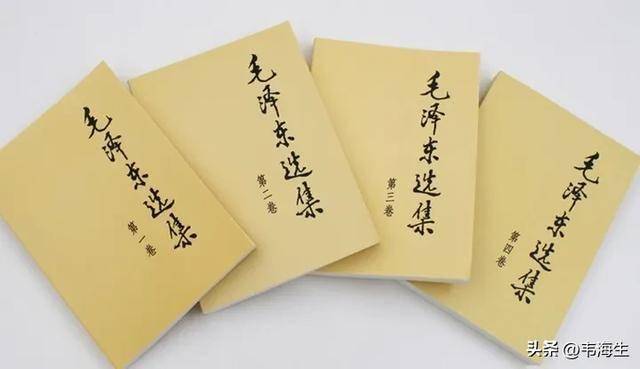 毛泽东选集
第一卷
毛泽东选集
第二卷
毛泽东选集
第三卷
毛泽东选集
第四卷
头条 @韦海生